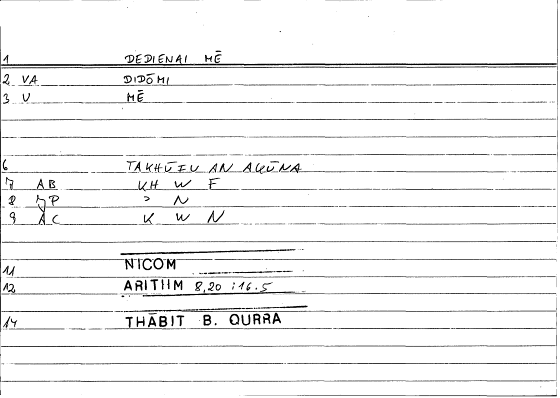 1 DEDIENAI MĒ
2 VA DIDŌMI
3 V MĒ
6 TAKHŪIU AN AKŪNA
7 AB KH W F
8 JP ʾ N
9 AC K W N
11 NICOM
12 ARITHM 8,20 :16.5
14 THĀBIT B. QURRA